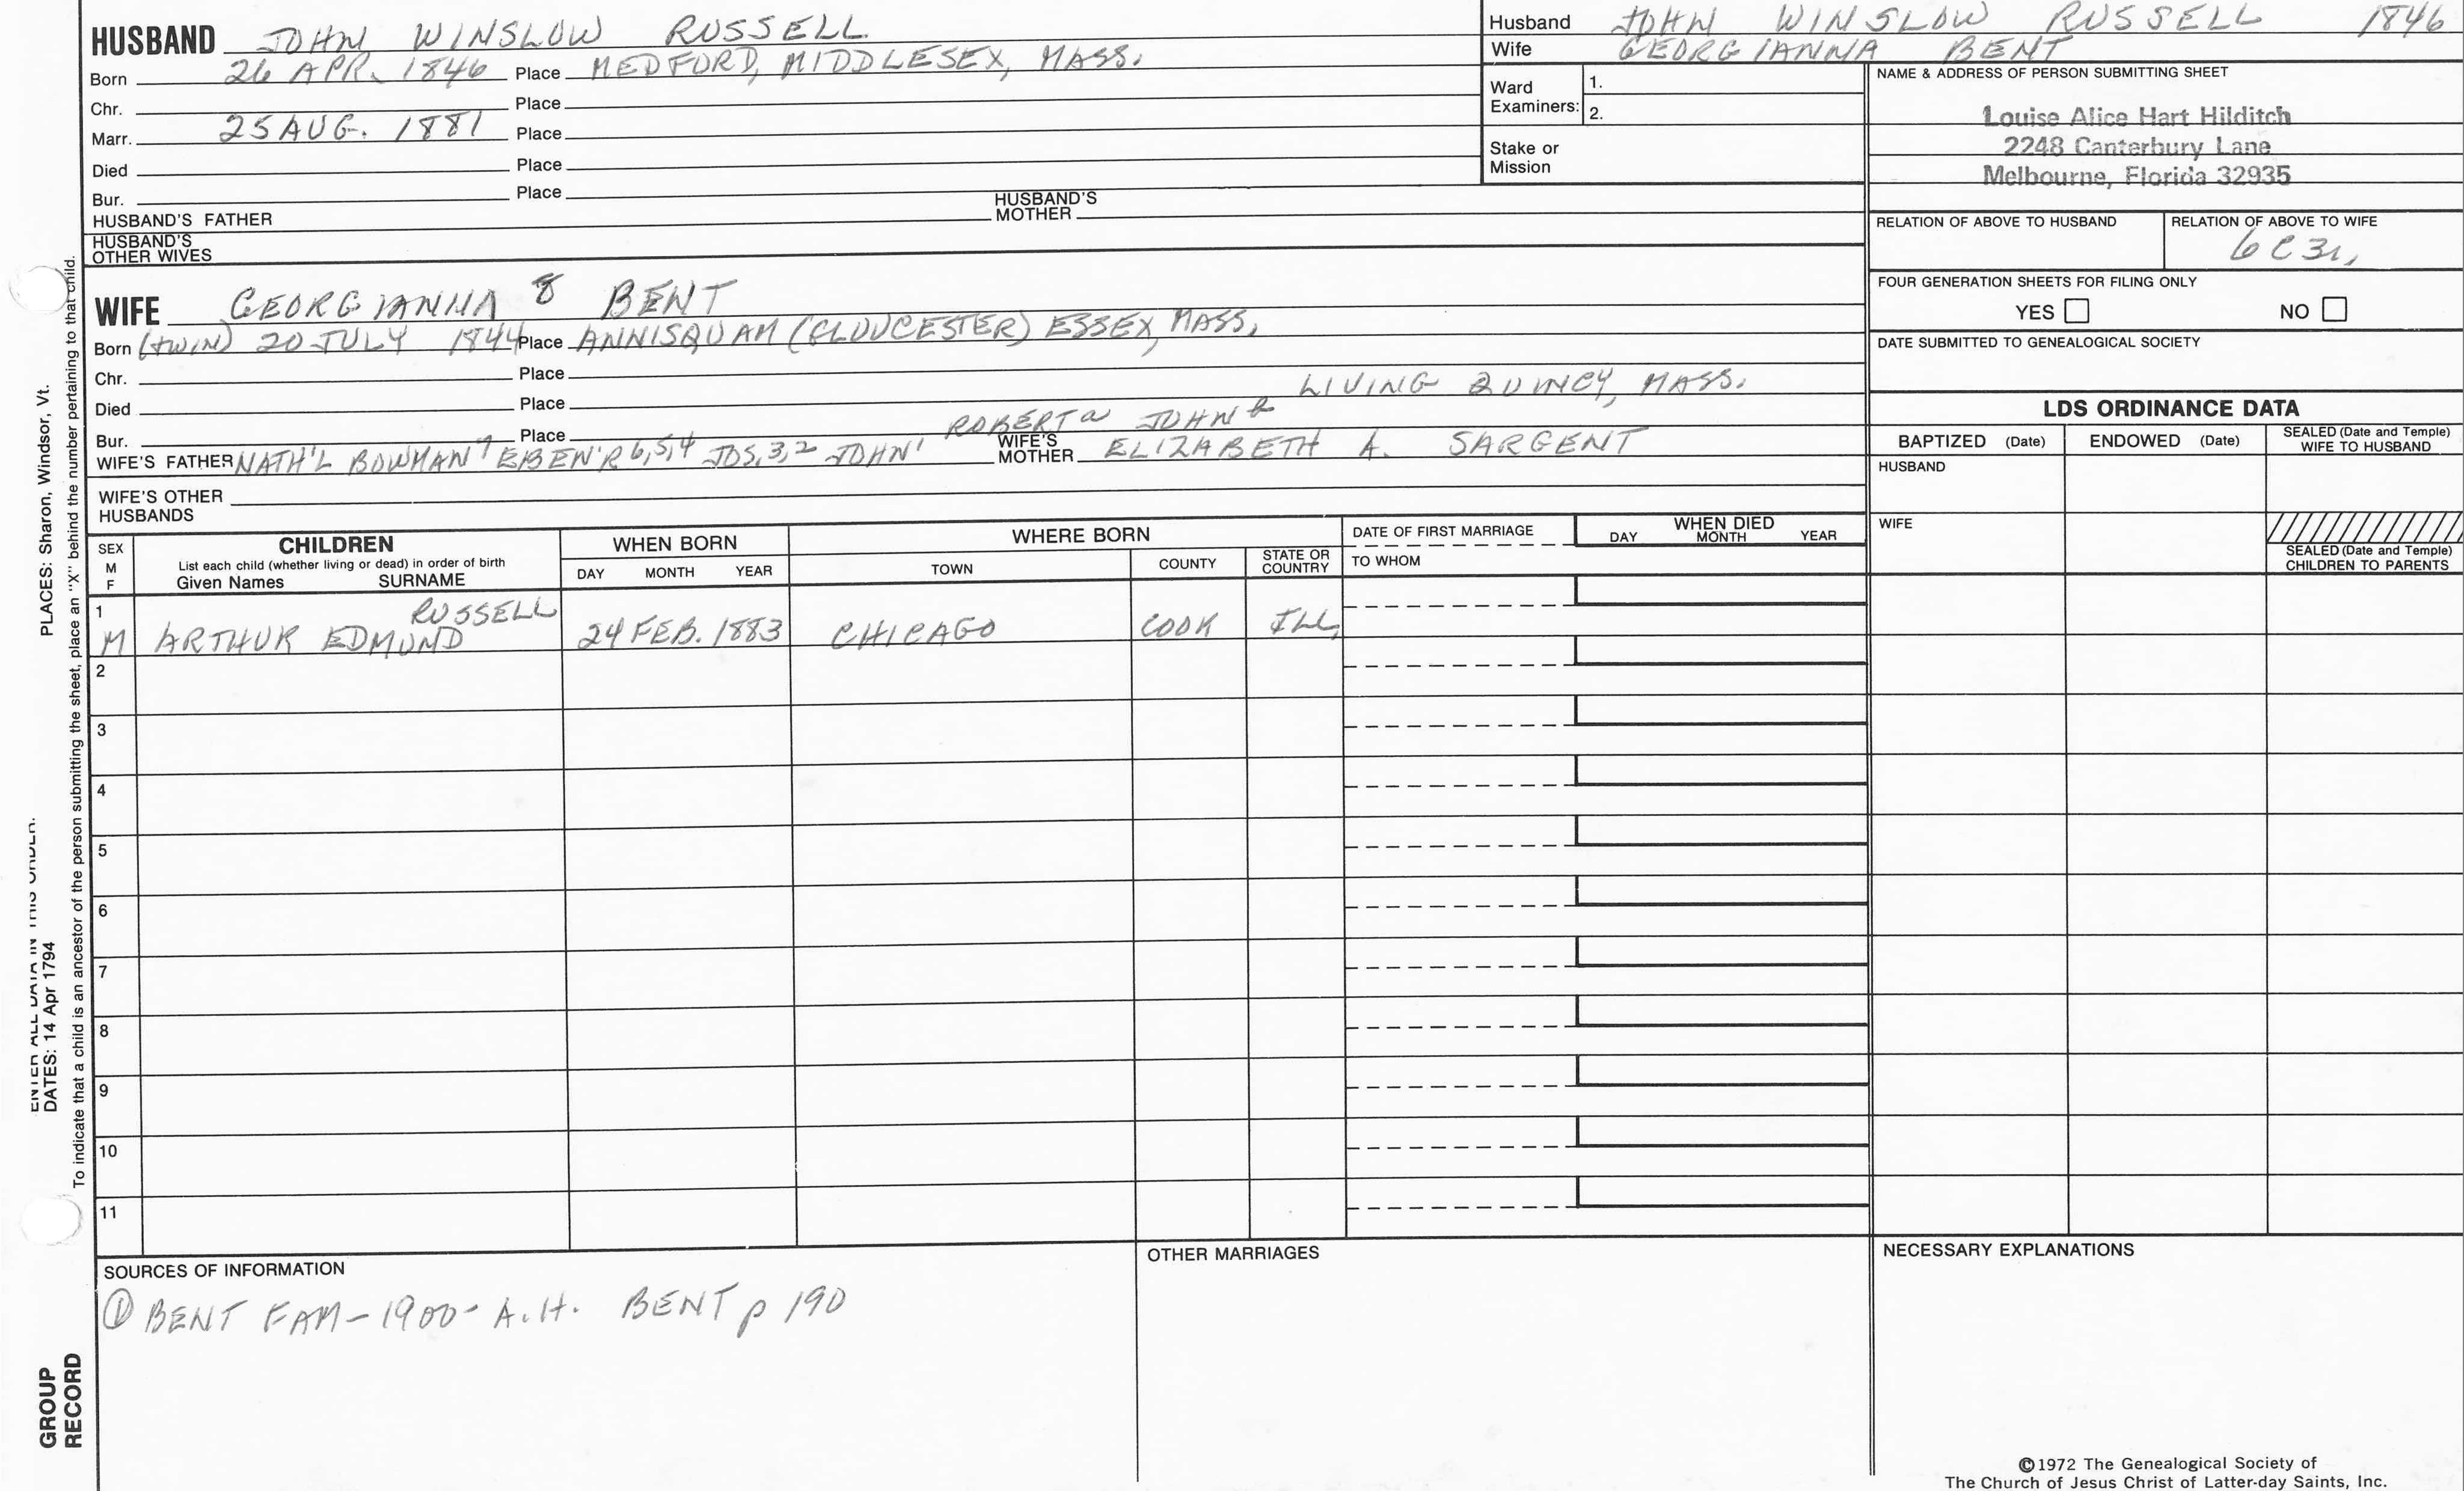 HUSBAND JOHN WINSLOW RUSSELL
Born 26 APR. 1846 Place MEDFORD, MIDDLESEX, MASS.
Chr. Place
Marr. 25 AUG. 1881 Place
Died Place
Bur. Place
HUSBAND'S FATHER HUSBAND'S MOTHER
HUSBAND'S OTHER WIVES
Husband JOHN WINSLOW RUSSELL 1846
Wife GEORGIANNA BENT
Ward Examiners: 1.
2.
Stake or Mission
NAME & ADDRESS OF PERSON SUBMITTING SHEET
Louise Alice Hart Hilditch
2248 Canterbury Lane
Melbourne, Florida 32935
RELATION OF ABOVE TO HUSBAND RELATION OF ABOVE TO WIFE
6C3r,
FOUR GENERATION SHEETS FOR FILING ONLY
YES NO
DATE SUBMITTED TO GENEALOGICAL SOCIETY
WIFE GEORGIANNA 8 BENT
Born (twin) 20 JULY 1844 Place ANNISQUAM (GLOUCESTER) ESSEX, MASS,
Chr. Place
LIVING QUINCY, MASS.
Died Place
ROBERT a JOHN b
Bur. Place
WIFE'S FATHER NATH'L BOWMAN 7 EBEN'R 6,5,4 JOS, 3,2 JOHN 1 WIFE'S MOTHER ELIZABETH A. SARGENT
WIFE'S OTHER HUSBANDS
LDS ORDINANCE DATA
BAPTIZED (Date) ENDOWED (Date) SEALED (Date and Temple) WIFE TO HUSBAND
HUSBAND
WIFE
SEALED (Date and Temple) CHILDREN TO PARENTS
SEX M F
CHILDREN
List each child (whether living or dead) in order of birth
Given Names SURNAME
WHEN BORN
DAY MONTH YEAR
WHERE BORN
TOWN COUNTY STATE OR COUNTRY
DATE OF FIRST MARRIAGE
TO WHOM
WHEN DIED
DAY MONTH YEAR
1 RUSSELL
M ARTHUR EDMUND 24 FEB. 1883 CHICAGO COOK ILL,
2
3
4
5
6
7
8
9
10
11
SOURCES OF INFORMATION
① BENT FAM - 1900 - A.H. BENT p 190
OTHER MARRIAGES
NECESSARY EXPLANATIONS
©1972 The Genealogical Society of
The Church of Jesus Christ of Latter-day Saints, Inc.
ENTER ALL DATA IN THIS ORDER:
DATES: 14 Apr 1794 PLACES: Sharon, Windsor, Vt.
To indicate that a child is an ancestor of the person submitting the sheet, place an "X" behind the number pertaining to that child.
GROUP
RECORD